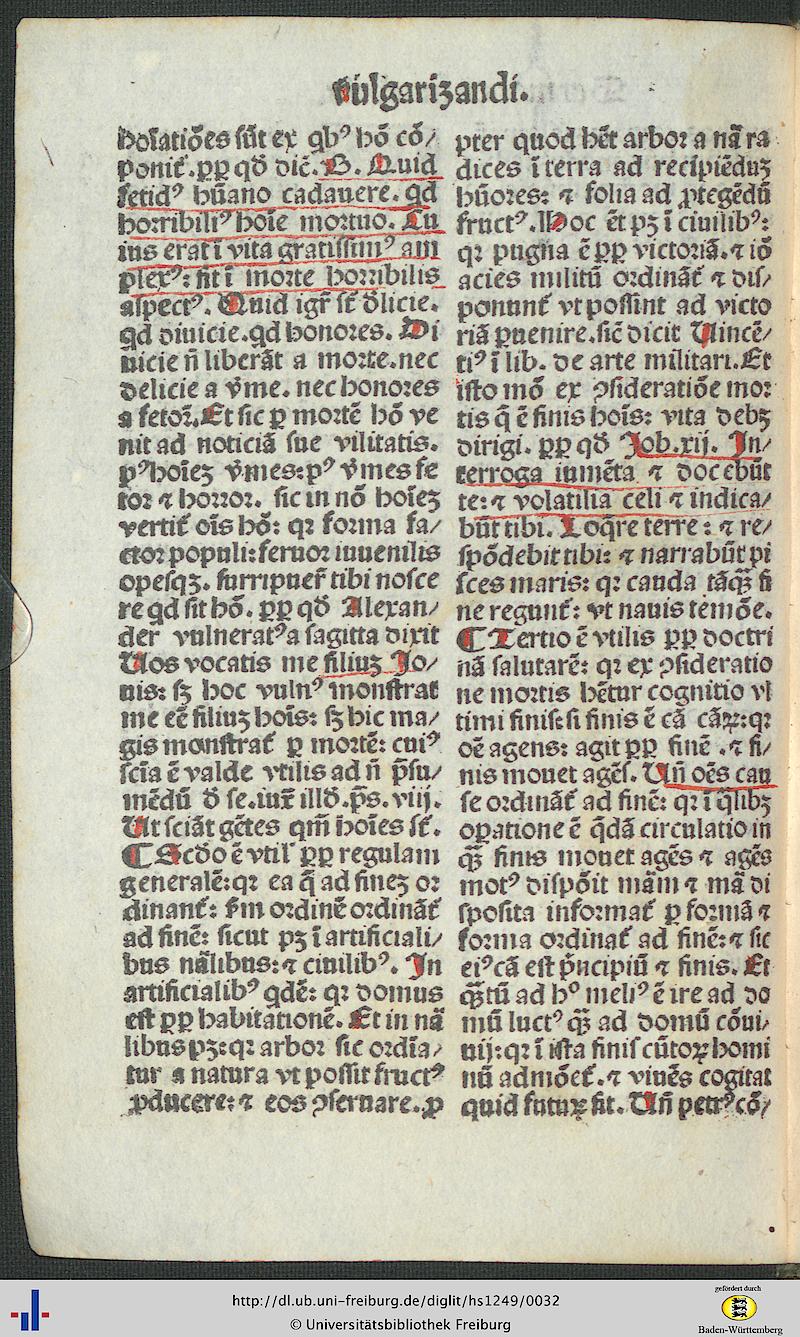 Vulgarizandi.
holatiōes sūt ex qbꝰ hō cō/
ponit᷑. ꝓp qđ dic̄. B. Quid
fetidꝰ hūano cadauere. qd
horribiliꝰ hoīe mortuo. Cu
ius erat ī vita gratissimꝰ am
plexꝰ: fit ī morte horribilis
aspectꝰ. Quid igr̄ st̄ đlicie.
qd diuicie. qd honores. Di
uicie n̄ liberāt a morte. nec
delicie a v̄me. nec honores
a fetor̄. Et sic ꝑ mortē hō ve
nit ad noticiā sue vilitatis.
pꝰ hoīeꝫ v̄mes: pꝰ v̄mes fe
tor ⁊ horror. sic in nō hoīeꝫ
vertit᷑ oīs hō: qꝛ forma fa/
ctor populi: feruor iuuenilis
opesqꝫ. surripuer̄ tibi nosce
re qd sit hō. ꝓp qđ Alexan/
der vulneratꝰ a sagitta dixit
Uos vocatis me filiuꝫ Jo/
uis: sꝫ hoc vulnꝰ monstrat
me eē filiuꝫ hoīs: sꝫ hic ma/
gis monstrat᷑ ꝑ mortē: cuiꝰ
scīa ē valde vtilis ad n̄ p̄su/
mēdū đ se. iux̄ illđ. ps̄. viij.
Ut sciāt gētes qm̄ hoīes st̄.
¶ Scđo ē vtil᷑ ꝓp regulam
generalē: qꝛ ea q̄ ad fineꝫ or
dinant᷑: s̄m ordinē ordināt᷑
ad finē: sicut pꝫ ī artificiali/
bus nālibus: ⁊ ciuilibꝰ. In
artificialibꝰ qdē: qꝛ domus
est ꝓp habitationē. Et in nā
libus pꝫ: qꝛ arbor sic ordīa/
tur a natura vt possit fructꝰ
ꝓducere: ⁊ eos ꝯseruare. ꝓ
pter quod hēt arbor a nā ra
dices ī terra ad recipiēduꝫ
hūores: ⁊ folia ad ꝓtegēdū
fructꝰ. Hoc ēt pꝫ ī ciuilibꝰ:
qꝛ pugna ē ꝓp victoriā. ⁊ iō
acies militū ordināt᷑ ⁊ dis/
ponunt᷑ vt possint ad victo
riā ꝑuenire. sic̄ dicit Uincē/
tiꝰ ī lib. de arte militari. Et
isto mō ex ꝯsideratiōe mor
tis q̄ ē finis hoīs: vita debꝫ
dirigi. ꝓp qđ Job. xij. In/
terroga iumēta ⁊ docebūt
te: ⁊ volatilia celi ⁊ indica/
būt tibi. Loq̄re terre: ⁊ re/
spōdebit tibi: ⁊ narrabūt pi
sces maris: qꝛ cauda tāqꝫ fi
ne regunt᷑: vt nauis temōe.
¶ Tertio ē vtilis ꝓp doctri
nā salutarē: qꝛ ex ꝯsideratio
ne mortis hētur cognitio vl
timi finis: si finis ē cā cāꝝ: qꝛ
oē agens: agit ꝓp finē. ⁊ fi/
nis mouet agēs. Un̄ oēs cau
se ordināt᷑ ad finē: qꝛ ī q̄libꝫ
oꝑatione ē q̄dā circulatio in
qꝫ finis mouet agēs ⁊ agēs
motꝰ dispōit mām ⁊ mā di
sposita informat᷑ ꝑ formā ⁊
forma ordinat᷑ ad finē: ⁊ sic
eiꝰ cā est p̄ncipiū ⁊ finis. Et
qꝫtū ad hº meliꝰ ē ire ad do
mū luctꝰ qꝫ ad domū cōui/
uij: qꝛ ī ista finis cūtoꝝ homi
nū admōet᷑. ⁊ viuēs cogitat
quid futuꝝ sit. Un̄ petrꝰ cō/
http://dl.ub.uni-freiburg.de/diglit/hs1249/0032
© Universitätsbibliothek Freiburg
gefördert durch
Baden-Württemberg